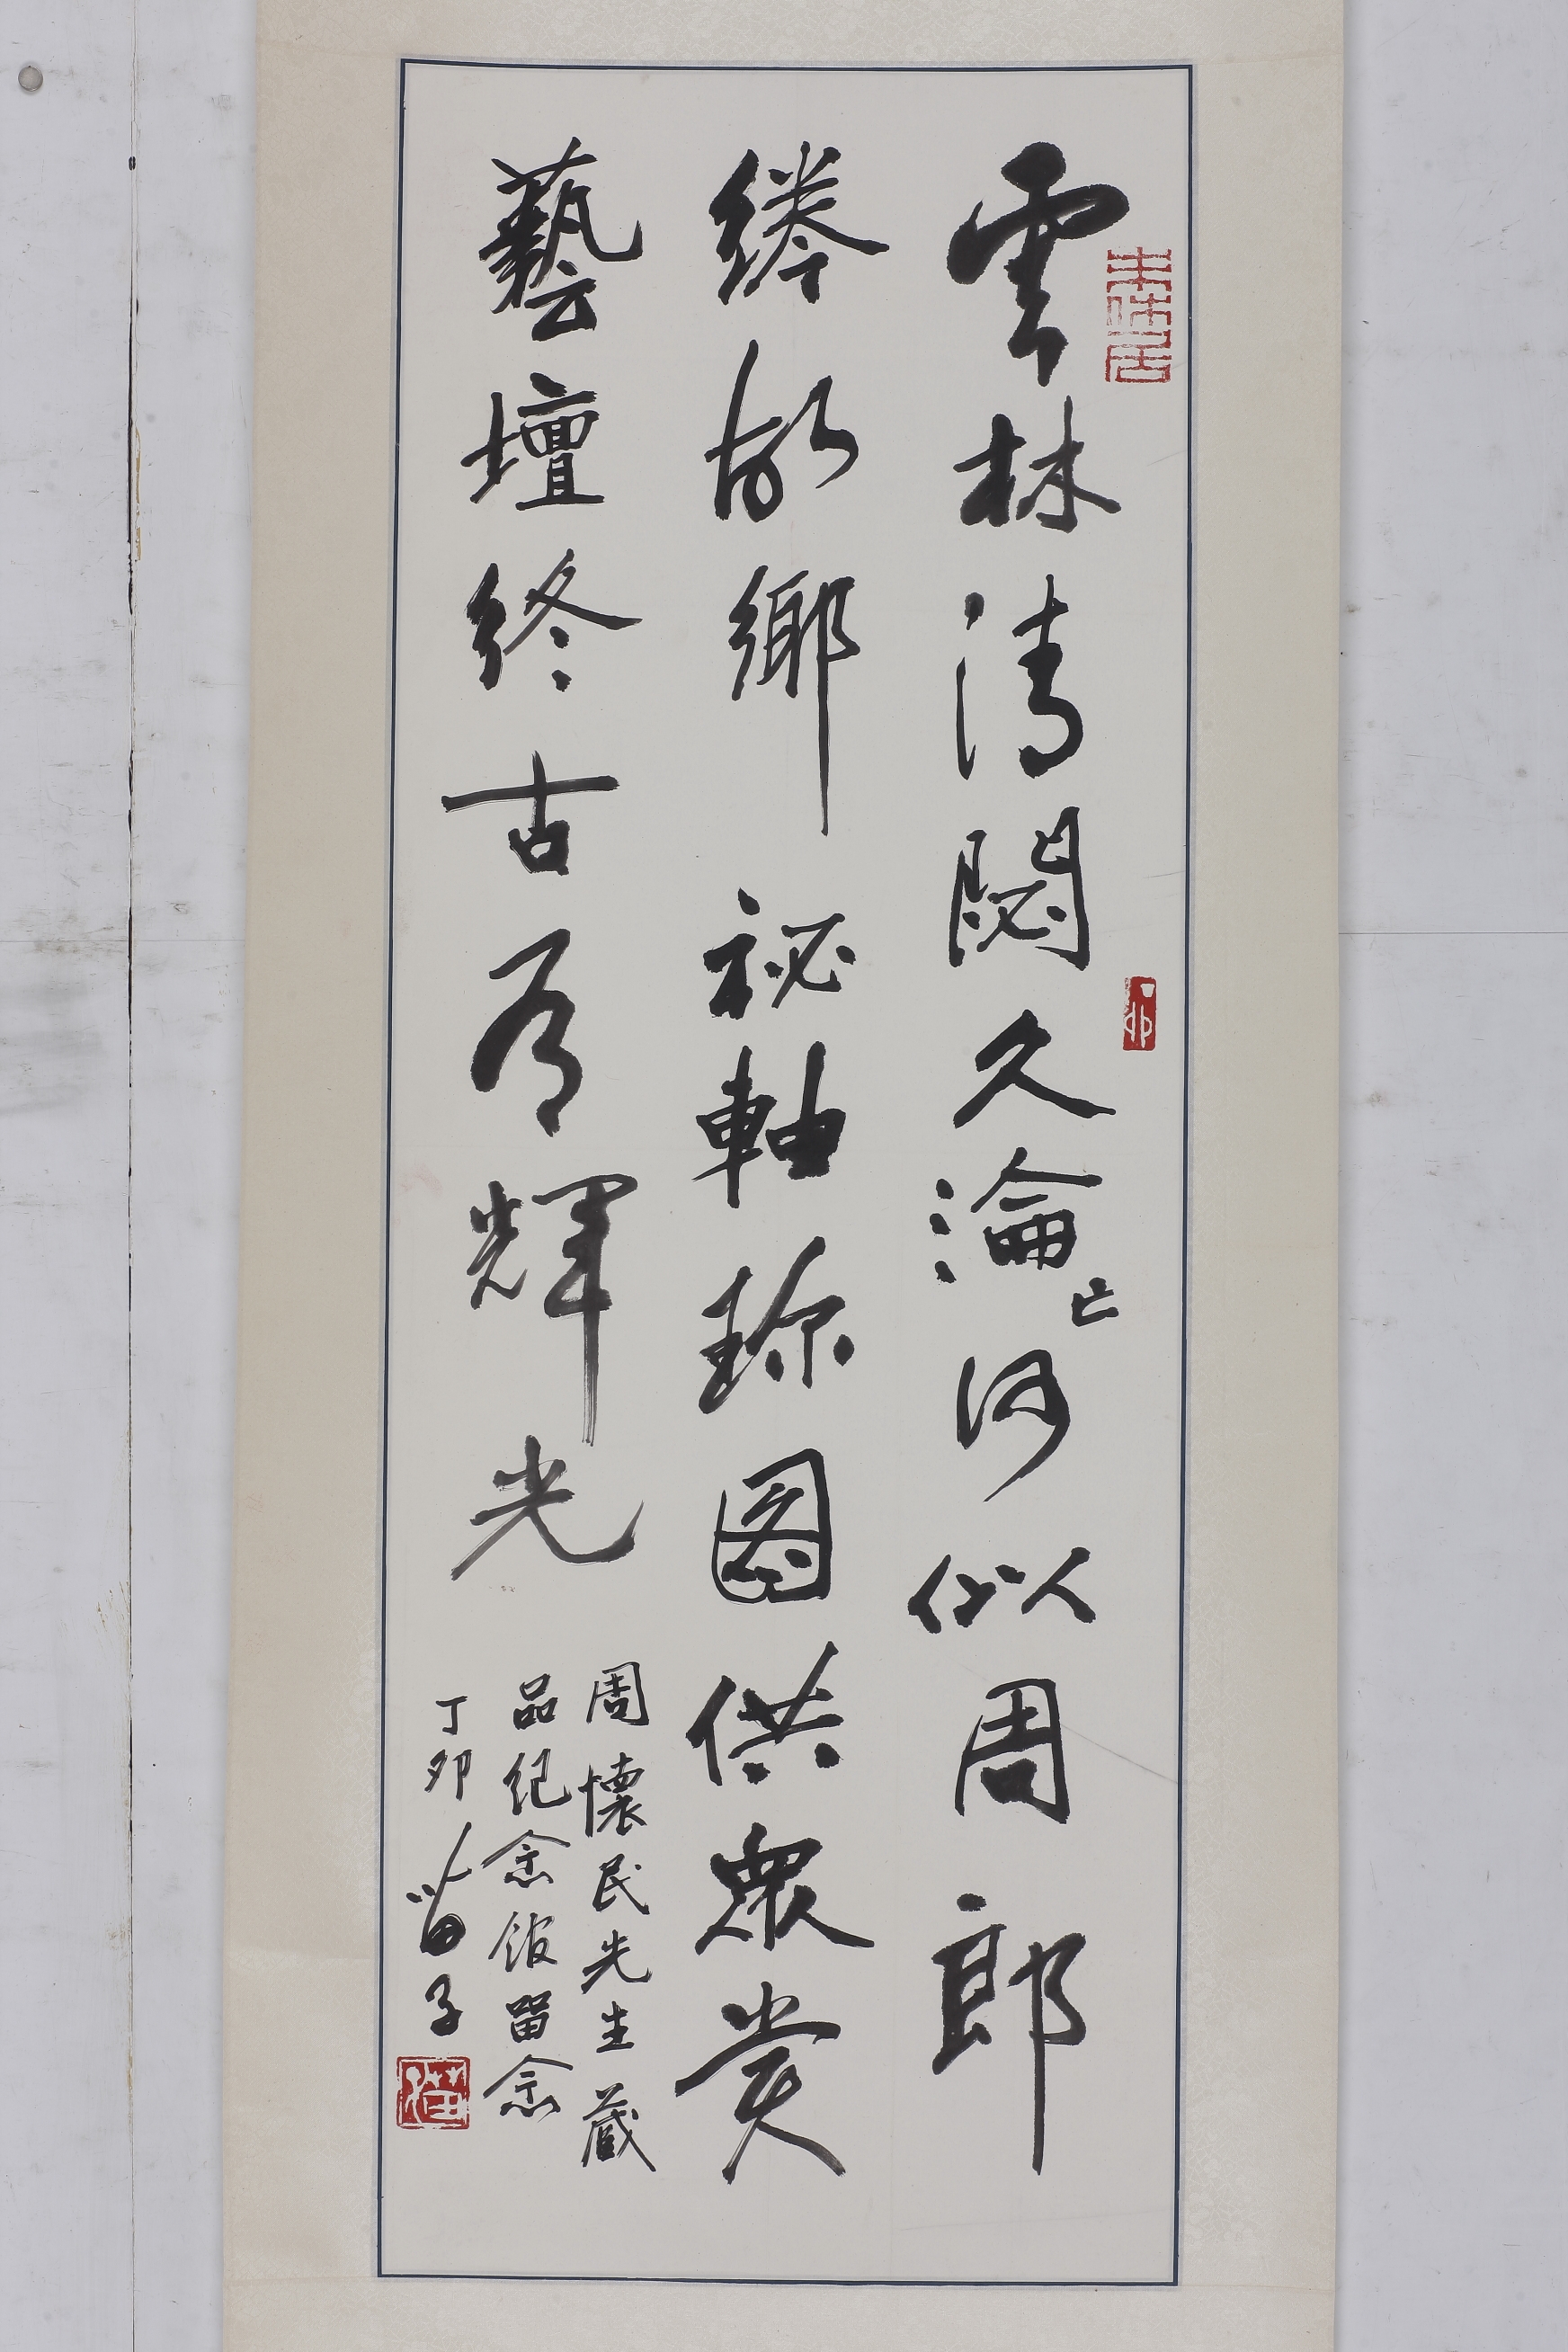 雲林清閟久淪亡何似周郎
綣故鄉祕軸珍圖供眾賞
藝壇終古有輝光
周懷民先生藏
品紀念館留念
丁卯 苗子